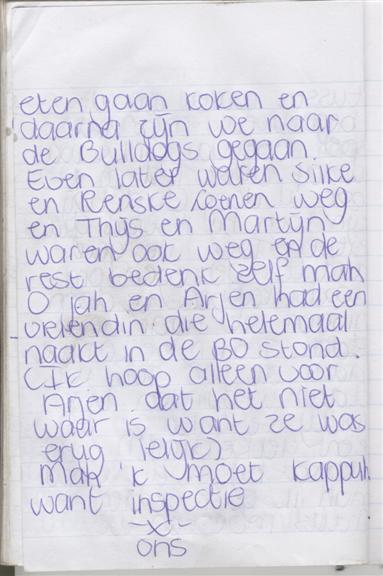 eten gaan koken en
daarna zijn we naar
de Bulldogs gegaan.
Even later waren Silke
en Renske zoenen weg
en Thijs en Martijn
waren ook weg en de
rest bedenk zelf mah
O jah en Arjen had een
vriendin die helemaal
naakt in de BO stond.
(Ik hoop alleen voor
Arjen dat het niet
waar is want ze was
erug lelijk)
mah 'k moet kappuh
want inspectie
-x-
ons